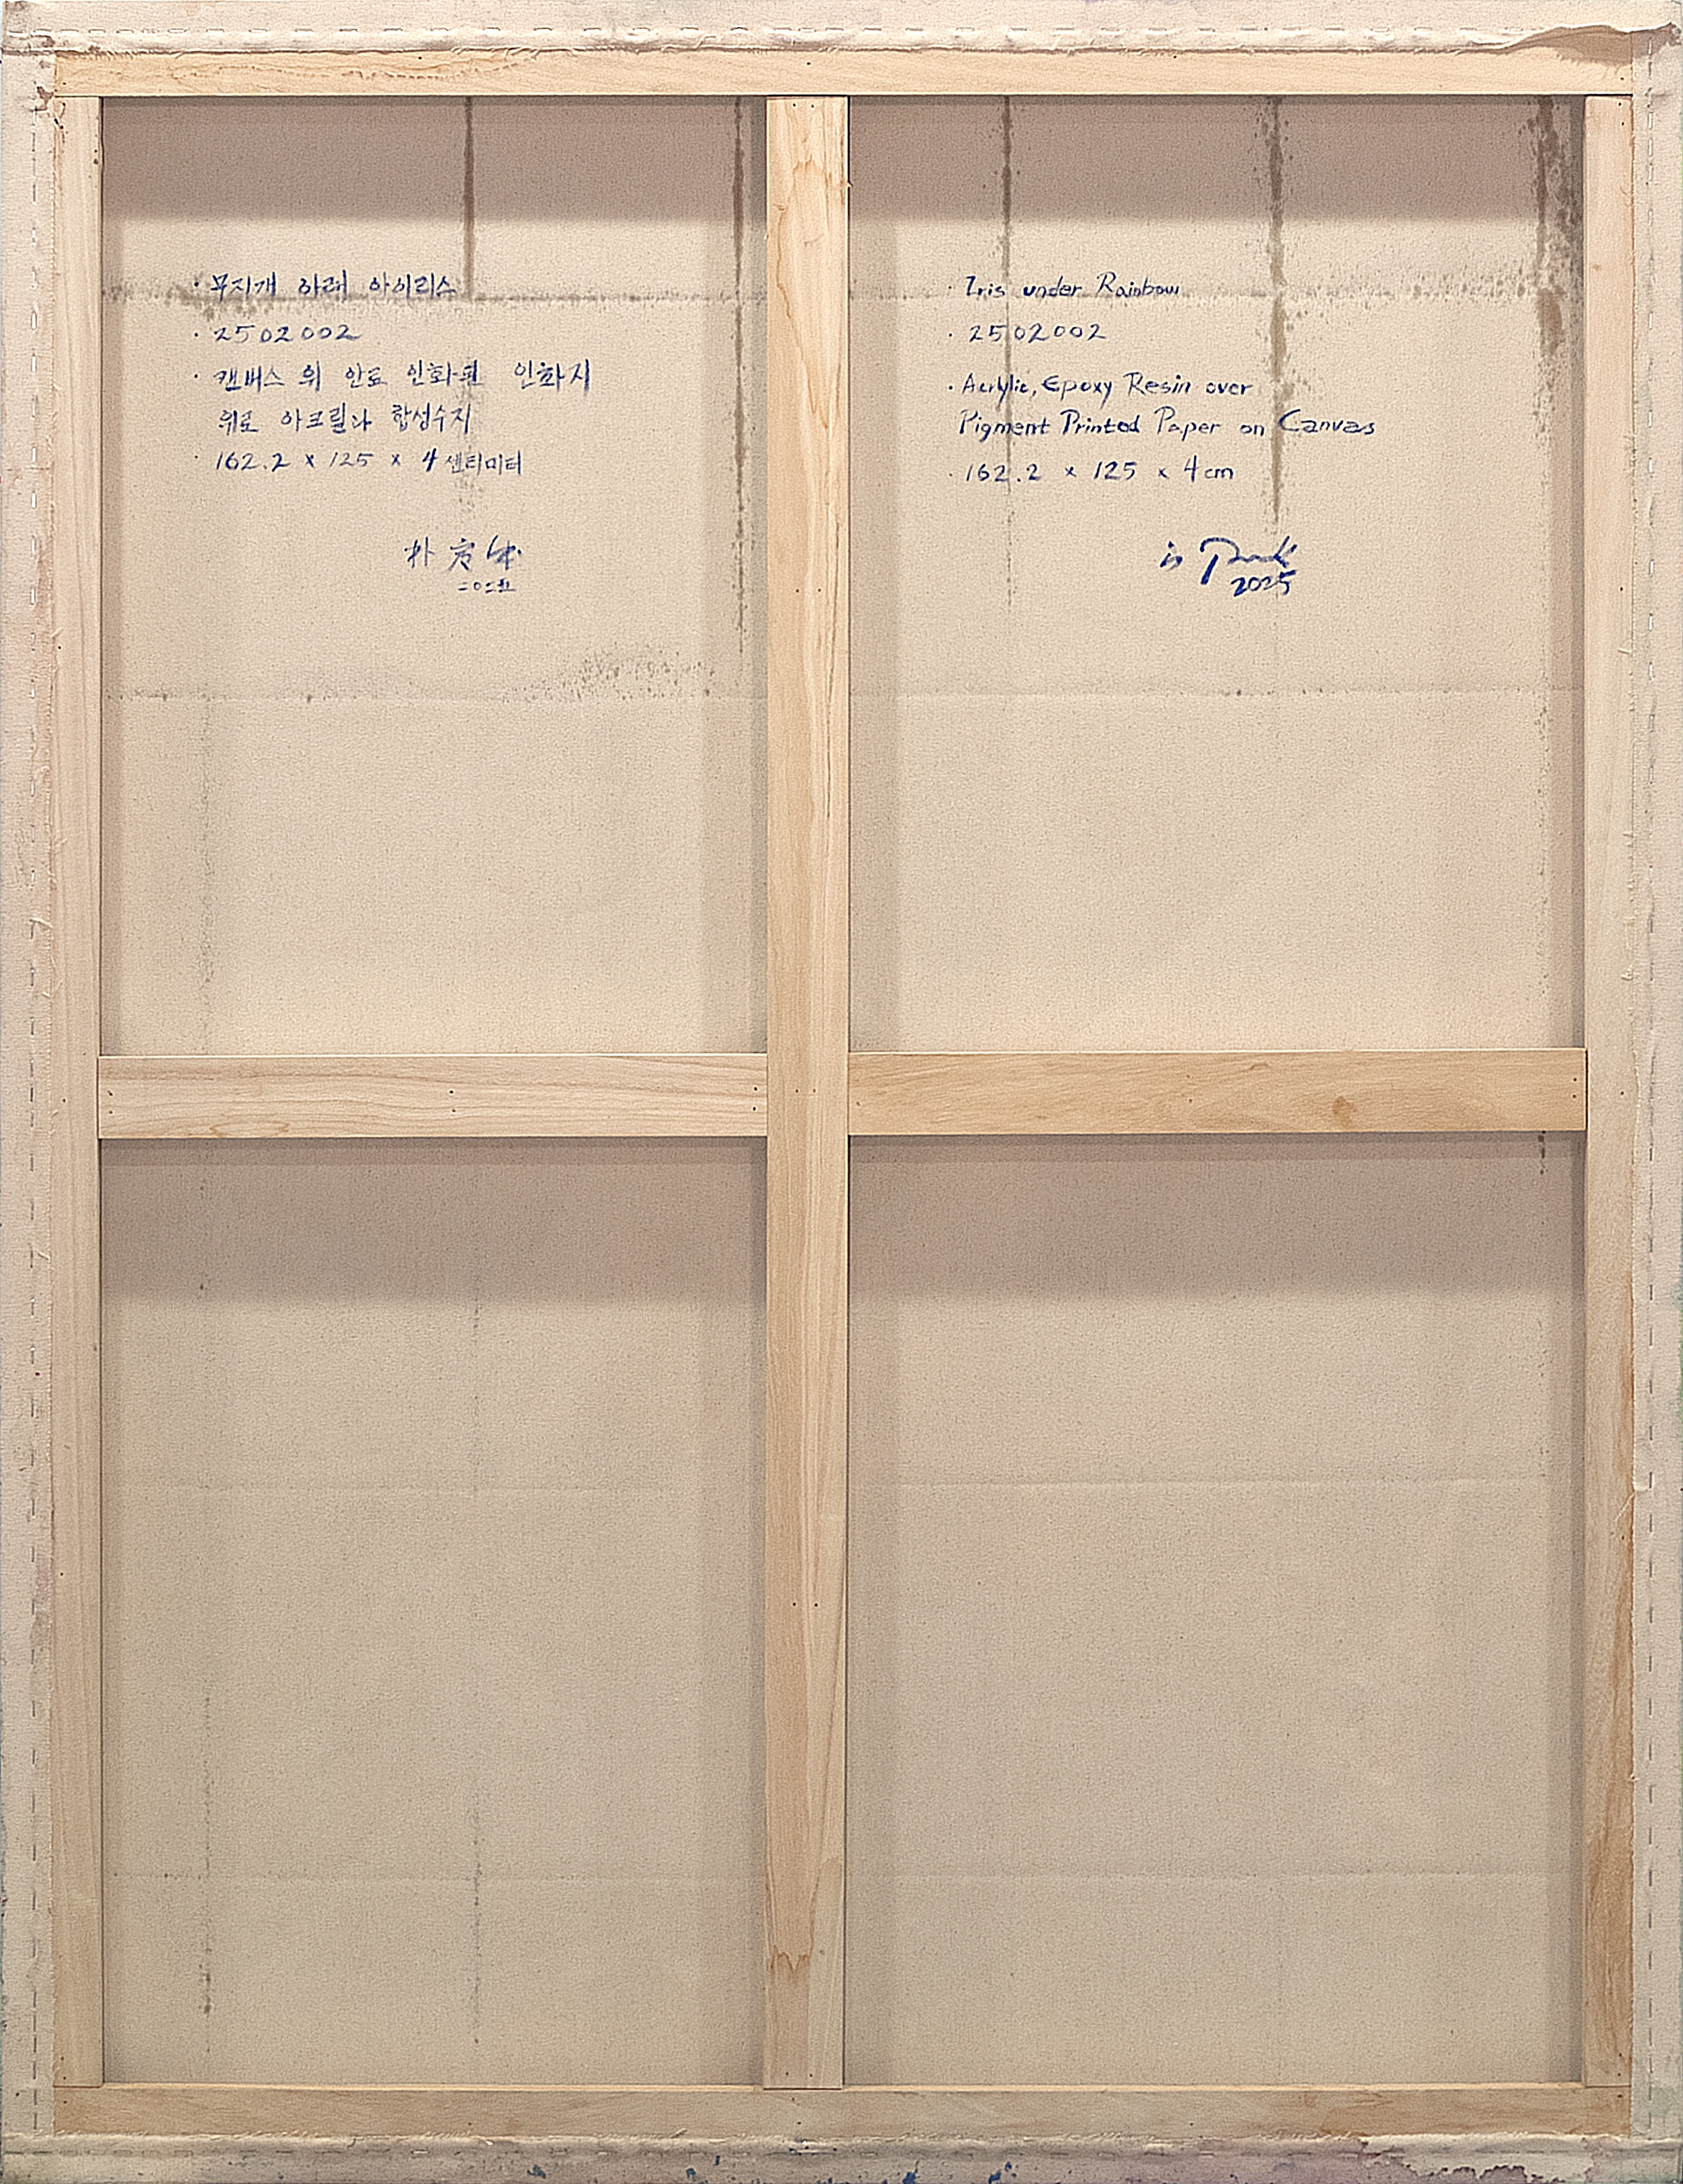 · 무지개 아래 아이리스
· 2502002
· 캔버스 위 안료 인화된 인화지
위로 아크릴과 합성수지
· 162.2 x 125 x 4 센티미터
朴 方
二〇二五
· Iris under Rainbow
· 2502002
· Acrylic, Epoxy Resin over
Pigment Printed Paper on Canvas
· 162.2 x 125 x 4 cm
Park
2025